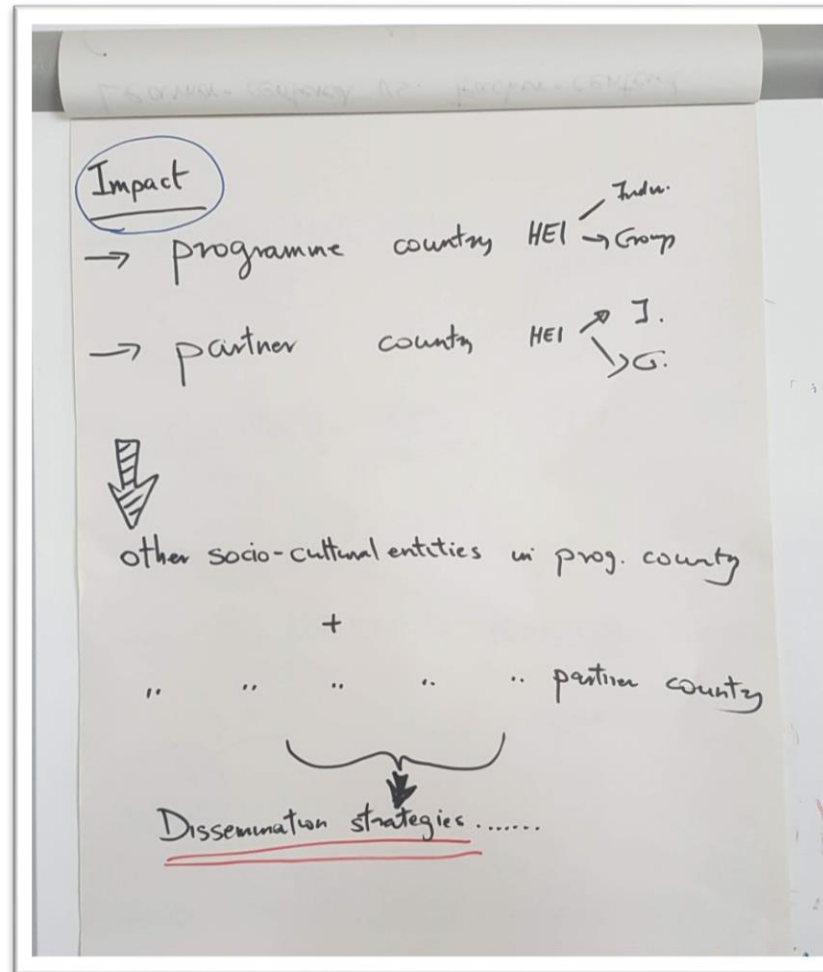 Learner-centered vs. teacher-centered
Impact
→ programme country HEI Indiv.
→ Group
→ partner country HEI I.
G.
other socio-cultural entities in prog. country
+
" " " " " partner country
Dissemination strategies.......